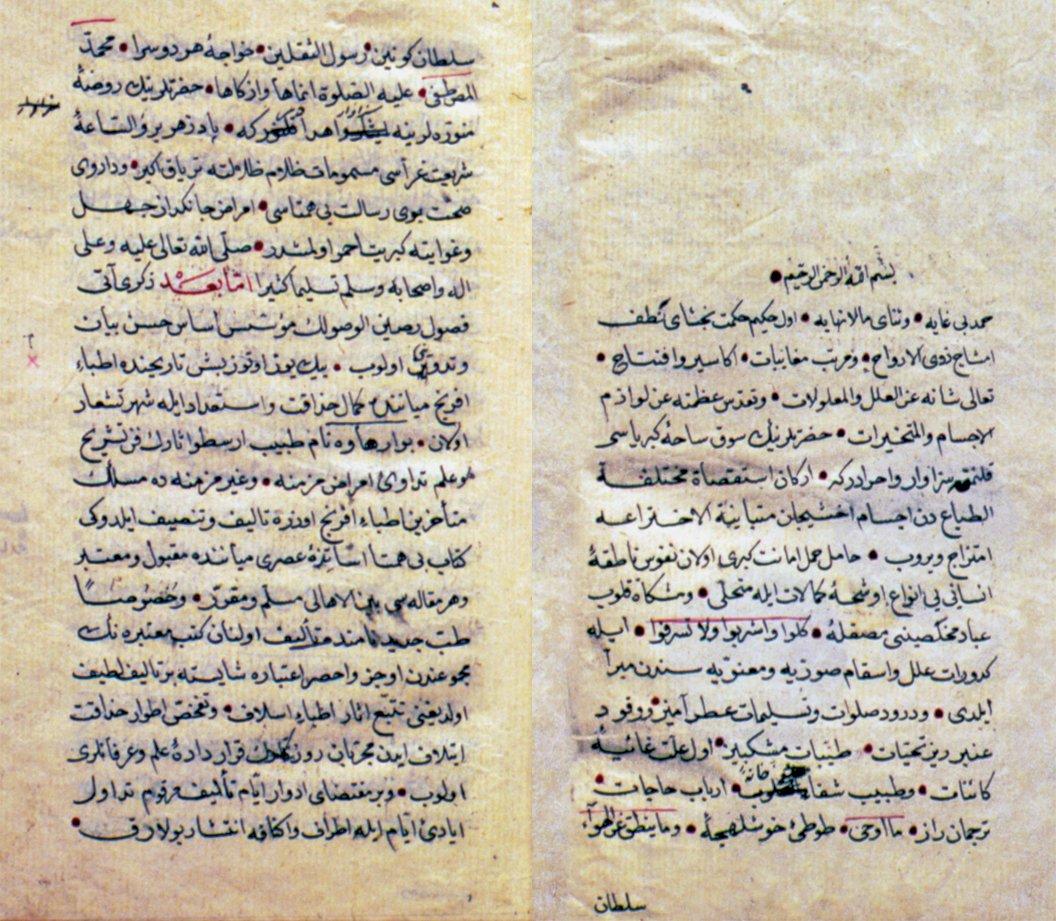 بسم الله الرحمن الرحيم
حمد بی غایه • وثنای مالانهایه • اول حکیم حکمت بخشای
امشاج ذوی الارواح • ومرتب • اکاسیر وافتتاح •
تعالی شانه عن العلل والمعلولات • وتقدس عظمته عن لوازم
الاجسام والمتحیزات • حضرتلرینك سوق ساحۀ کبریاسی
سزاوار واحرادرکه • ارکان استقصاۀ مختلفة
الطبایع دن اجسام متباینة الاختراعه
امتزاج ویروب • حامل حمل امانت کبری اولان نفوس ناطقۀ
انسانی بی انواع اوشحۀ کمالات ایله متحلی • ومشکاة قلوب
عباد مخلصینی مصقلۀ • کلوا واشربوا ولا تسرفوا • ایله
کدورات علل واسقام صوریه ومعنویه سندن مبرا
ایلدی • ودرود صلوات وتسلیمات عطر آمیز
عنبر ریز تحیات • طیبات مشکبیز • اول علت غائیۀ
کائنات • وطبیب شفا خانۀ • ارباب حاجات •
ترجمان راز • ما اوحی • طوطیٔ خوش لهجۀ • وما ینطق عن الهوا •
سلطان
سلطان کونین • رسول الثقلین • خواجۀ هر دوسرا • محمد
المصطفی • علیه الصلوة انماها وازکاها • حضرتلرینك روضۀ
منوره لرینه اهدا که • بادزهر برؤ الساعۀ
شریعت غراسی مسمومات ظلام ظلامته تریاق اکبر • وداروی
صحت بوی رسالت بی همتاسی • امراض جانکداز جهل
وغوایته کبریت احمر اولمشدر • صلی الله تعالی علیه وعلی
اله واصحابه وسلم تسلیما کثیرا اما بعد ذکری آتی
فصول رصین الوصولك مؤسس اساس حسن بیان
وتدوینی اولوب • بیك یوز اوتوز بش تاریخنده اطباء
افرنج میاننده کمال حذاقت واستعداد ایله شهرتشعار
اولان • بوارهاوه نام طبیب ارسطو اثارك فن تشریح
وعلم تداوئ امراض مزمنه • وغیر مزمنه ده مسلك
متأخرین اطباء افرنج اوزره تالیف وتنصیف ایلدوکی
کتاب بی همتا اساتذۀ عصری میاننده مقبول ومعتبر
وهر مقاله سی بین الاهالی مسلم ومقرر • وخصوصا
طب جدید نامنده تألیف اولنان کتب معتبره نك
مجموعندن اوجز واحصر اعتباره شایسته بر تالیف لطیف
اولدیغنی تتبع اثار اطباء اسلاف • وتفحص اطوار حذاقت
ایتلاف ایدن مجربان روزکارك قرار دادۀ علم وعرفانلری
اولوب • وبر مقتضای ادوار ایام تألیف مرقوم تداول
ایادئ ایام ایله اطراف واکنافه انتشار بولارق •